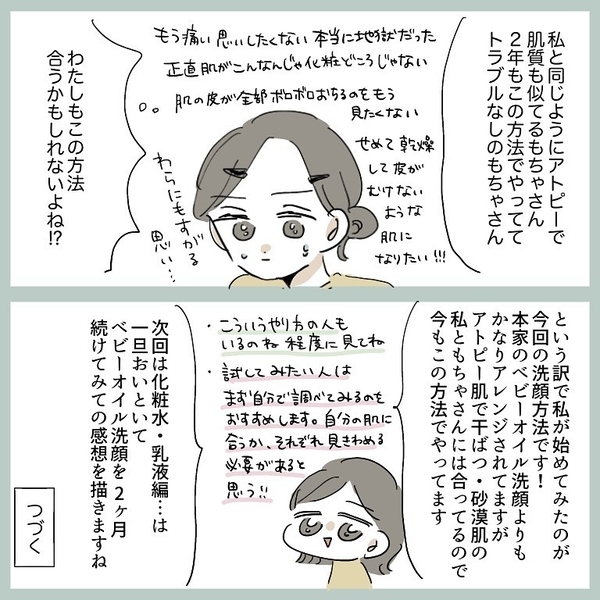 私と同じようにアトピーで
肌質も似てるもちゃさん
2年もこの方法でやってて
トラブルなしのもちゃさん
もう痛い思いしたくない本当に地獄だった
正直肌がこんなんじゃ化粧どころじゃない
肌の皮が全部ボロボロおちるのをもう
見たくない
せめて乾燥
して皮が
むけない
ような
肌に
なりたい!!!
わらにもすがる
思い…
わたしもこの方法
合うかもしれないよね!?
という訳で私が始めてみたのが
今回の洗顔方法です!
本家のベビーオイル洗顔よりも
かなりアレンジされてますが
アトピー肌で干ばつ・砂漠肌の
私ともちゃさんには合ってるので
今もこの方法でやってます
・こういうやり方の人も
いるのね 程度に見てね
・試してみたい人は
まず自分で調べてみるのを
おすすめします。自分の肌に
合うか、それぞれ見きわめる
必要があると
思う!!
次回は化粧水・乳液編…は
一旦おいといて
ベビーオイル洗顔を2ヶ月
続けてみての感想を描きますね
つづく